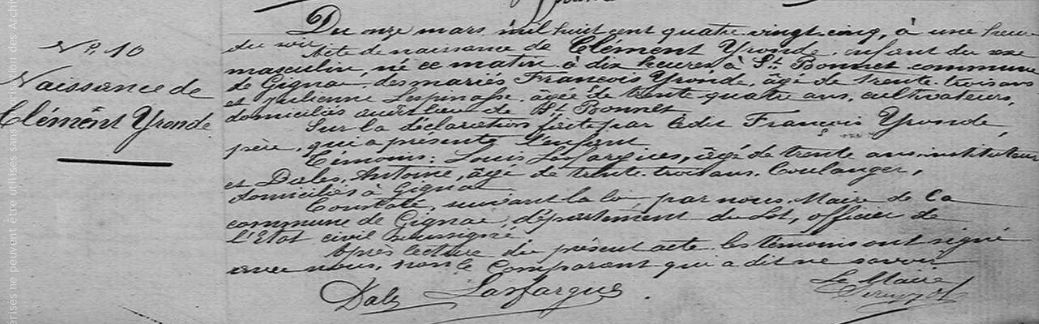 N° 10
Naissance de
Clément Yronde
Du onze mars mil huit cent quatre vingt cinq, à une heure
du soir
Acte de naissance de Clément Yronde, enfant du sexe
masculin, né ce matin à dix heures à St Bonnet commune
de Gignac, des mariés François Yronde, âgé de trente trois ans
et Julienne Lespinasse, âgée de trente quatre ans, cultivateurs,
domiciliés audit lieu de St Bonnet
Sur la déclaration faite par ledit François Yronde,
père, qui a présenté l'enfant
Témoins: Louis Lasfargues, âgé de trente ans, instituteur
et Dales, Antoine, âgé de trente trois ans, boulanger,
domiciliés à Gignac
Constaté, suivant la loi, par nous, Maire de la
commune de Gignac, département du Lot, officier de
l'Etat civil soussigné
Après lecture du présent acte les témoins ont signé
avec nous, non le comparant qui a dit ne savoir
Dales Lasfargues
Le Maire